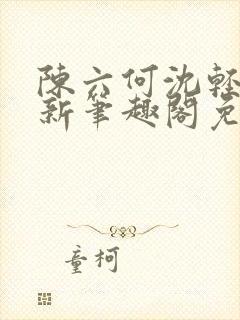 陳六何沈輕
新筆趣閣免
童柯